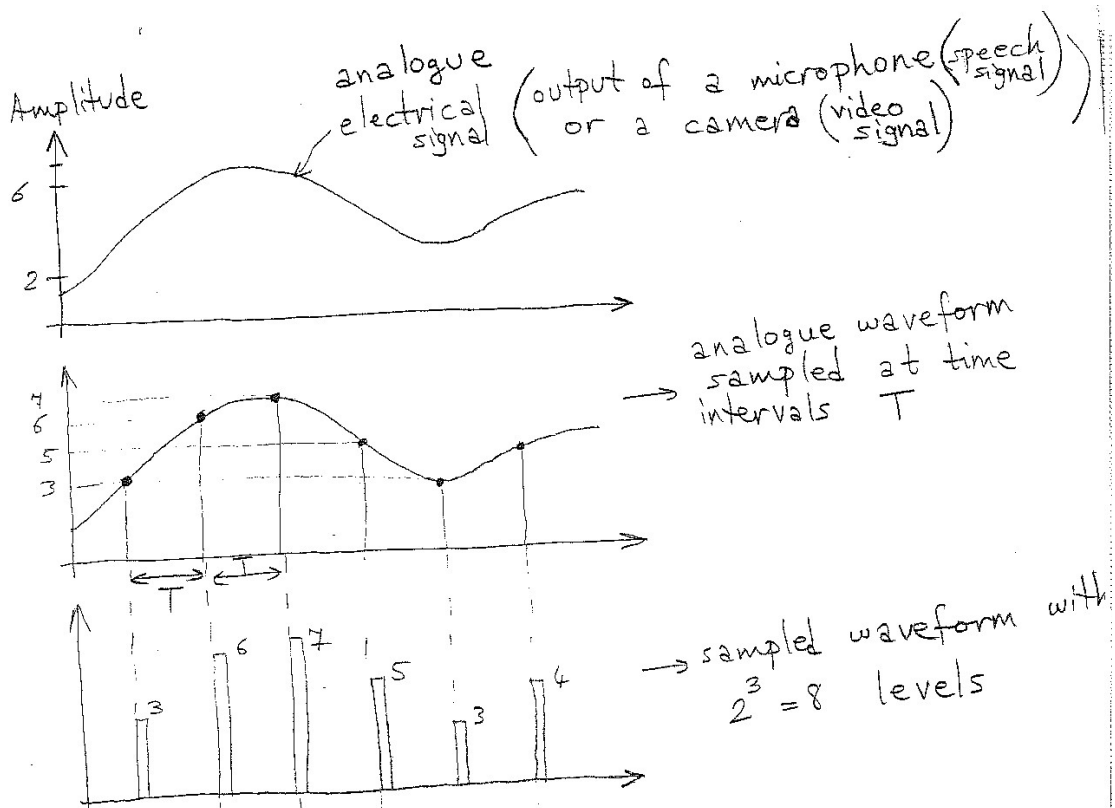 Amplitude
6
2
analogue
electrical
signal
(output of a microphone (speech signal)
or a camera (video signal))
7
6
5
3
T
T
→ analogue waveform
sampled at time
intervals T
3
6
7
5
3
4
→ sampled waveform with
2³ = 8 levels